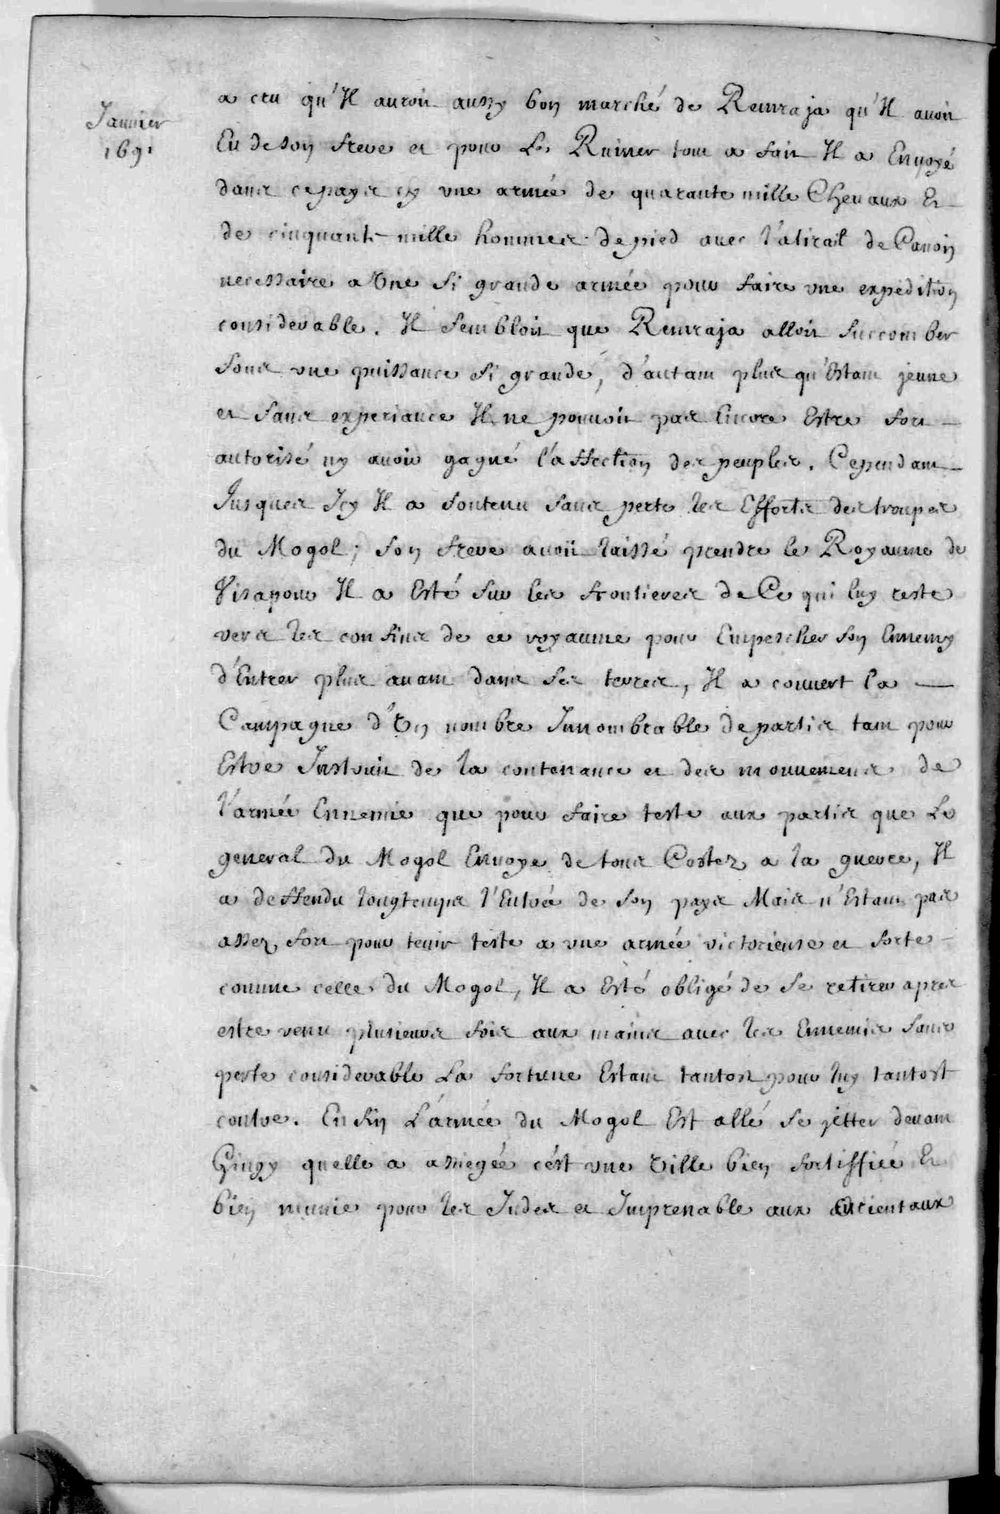 Janvier
1691
a cru qu'Il auroit aussy bon marché de Remraja qu'Il avoit
Eu de son frere et pour Le Ruiner tout a fait Il a Envoyé
dans ce pays cy une armée de quarante mille Chevaux Et
de cinquante mille hommes de pied avec l'atirail de Canon
necessaire a Une si grande armée pour faire une expédition
considerable. Il sembloit que Remraja alloit succomber
sous une puissance si grande, d'autant plus qu'Estant jeune
et sans experiance Il ne pouvoit pas Encore Estre fort
autorisé ny avoir gagné l'affection des peuples. Cependant
Jusques Icy Il a soutenu sans perte les Efforts des troupes
du Mogol; son frere avoit laissé prendre le Royaume de
Visapour Il a Esté sur les frontieres de Ce qui luy reste
vers les confins de ce royaume pour Empescher son Ennemy
d'Entrer plus avant dans ses terres, Il a couvert la
Campagne d'Un nombre Innombrable de partis tant pour
Estre Instruit de la contenance et des mouvemens de
l'armée Ennemie que pour faire teste aux partis que Le
general du Mogol Envoye de tous Costez a la guerre, Il
a deffendu longtemps l'Entrée de son pays Mais n'Estant pas
assez fort pour tenir teste a une armée victorieuse et forte
comme celle du Mogol, Il a Esté obligé de se retirer apres
estre venu plusieurs fois aux mains avec les Ennemis sans
perte considerable La fortune Estant tantost pour luy tantost
contre. Enfin L'armée du Mogol Est allé se jetter devant
Gingy quelle a assiegée c'est une Ville bien fortiffiée Et
bien munie pour les Indes et Imprenable aux Orientaux